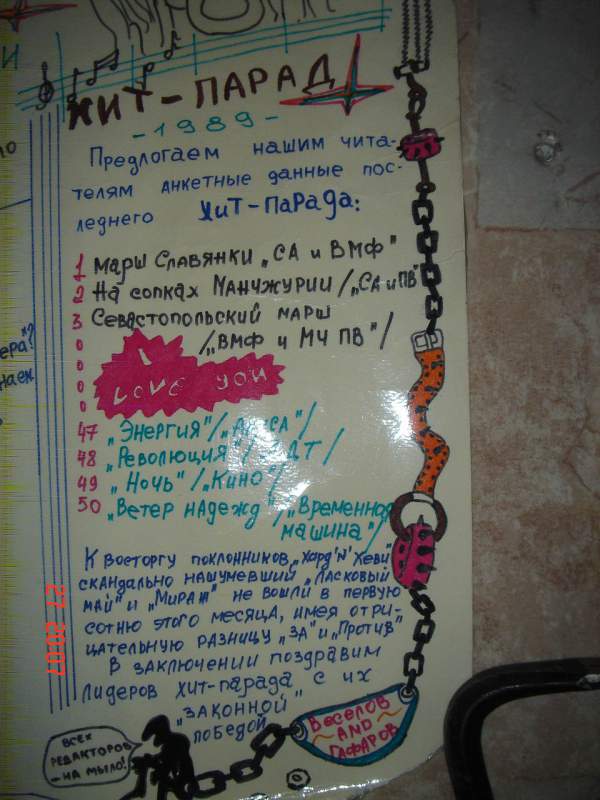 ХИТ-ПАРАД
-1989-
Предлогаем нашим чита-
телям анкетные данные пос-
леднего Хит-Парада:
1 Марш Славянки „СА и ВМФ"
2 На сопках Манчжурии /„СА и ПВ"
3 Севастопольский марш
/„ВМФ и МЧ ПВ"/
I
LOVE YOU
47 „Энергия"/„Алиса"/
48 „Революция"/ДДТ/
49 „Ночь"/„Кино"/
50 „Ветер надежд"/„Временной
машина"/
К восторгу поклонников „Хард'n'Хеви"
скандально нашумевший „Ласковый
май" и „Мираж" не вошли в первую
сотню этого месяца, имея отри-
цательную разницу „ЗА" и „Против"
В заключении поздравим
лидеров хит-парада с их
„законной"
победой
Веселов
AND
Гафаров
Всех
редакторов
-на мыло!
27 2007